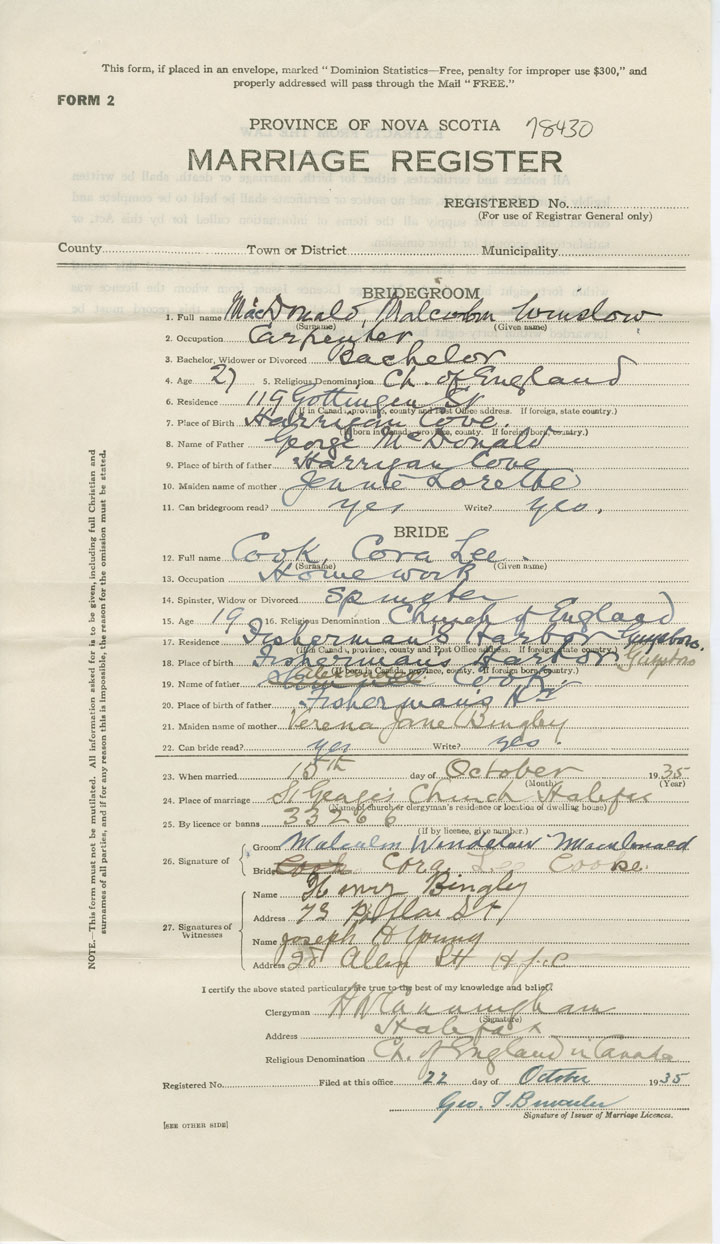 This form, if placed in an envelope, marked "Dominion Statistics—Free, penalty for improper use $300," and
properly addressed will pass through the Mail "FREE."
FORM 2
PROVINCE OF NOVA SCOTIA 78430
MARRIAGE REGISTER
REGISTERED No.
(For use of Registrar General only)
County Town or District Municipality
BRIDEGROOM
1. Full name MacDonald, Malcolm Winslow
(Surname) (Given name)
2. Occupation Carpenter
3. Bachelor, Widower or Divorced Bachelor
4. Age 27 5. Religious Denomination Ch. of England
6. Residence 119 Gottingen St.
(If in Canada, province, county and Post Office address. If foreign, state country.)
7. Place of Birth Harrigan Cove.
(If born in Canada, province, county. If foreign born, country.)
8. Name of Father George McDonald
9. Place of birth of father Harrigan Cove
10. Maiden name of mother Jennie Lorette
11. Can bridegroom read? yes Write? yes.
BRIDE
12. Full name Cook, Cora Lee.
(Surname) (Given name)
13. Occupation Homework
14. Spinster, Widow or Divorced Spinster
15. Age 19 16. Religious Denomination Church of England
17. Residence Fisherman's Harbor Guysboro.
(If in Canada, province, county and Post Office address. If foreign, state country.)
18. Place of birth Fishermans Harbor Guysboro
(If born in Canada, province, county. If foreign born, country.)
19. Name of father Cook
20. Place of birth of father Fisherman's Hr
21. Maiden name of mother Verena Jane Bingley
22. Can bride read? yes Write? yes.
23. When married 15th day of October 1935
(Month) (Year)
24. Place of marriage St Georges Church Halifax
(Name of church or clergyman's residence or location of dwelling house)
25. By licence or banns 33266
(If by licence, give number.)
26. Signature of
Groom Malcolm Windslow Macdonald
Bride Cook Cora Lee Cooke.
27. Signatures of Witnesses
Name Henry Bingley
Address 73 St
Name Joseph H Young
Address 28 Allen St Hfx
I certify the above stated particulars are true to the best of my knowledge and belief.
Clergyman H Cunningham
(Signature)
Address Halifax
Religious Denomination Ch. of England in Canada
Registered No. Filed at this office 22 day of October 1935
Geo. T.
Signature of Issuer of Marriage Licences.
[SEE OTHER SIDE]
NOTE.—This form must not be mutilated. All information asked for is to be given, including full Christian and
surnames of all parties, and if for any reason this is impossible, the reason for the omission must be stated.